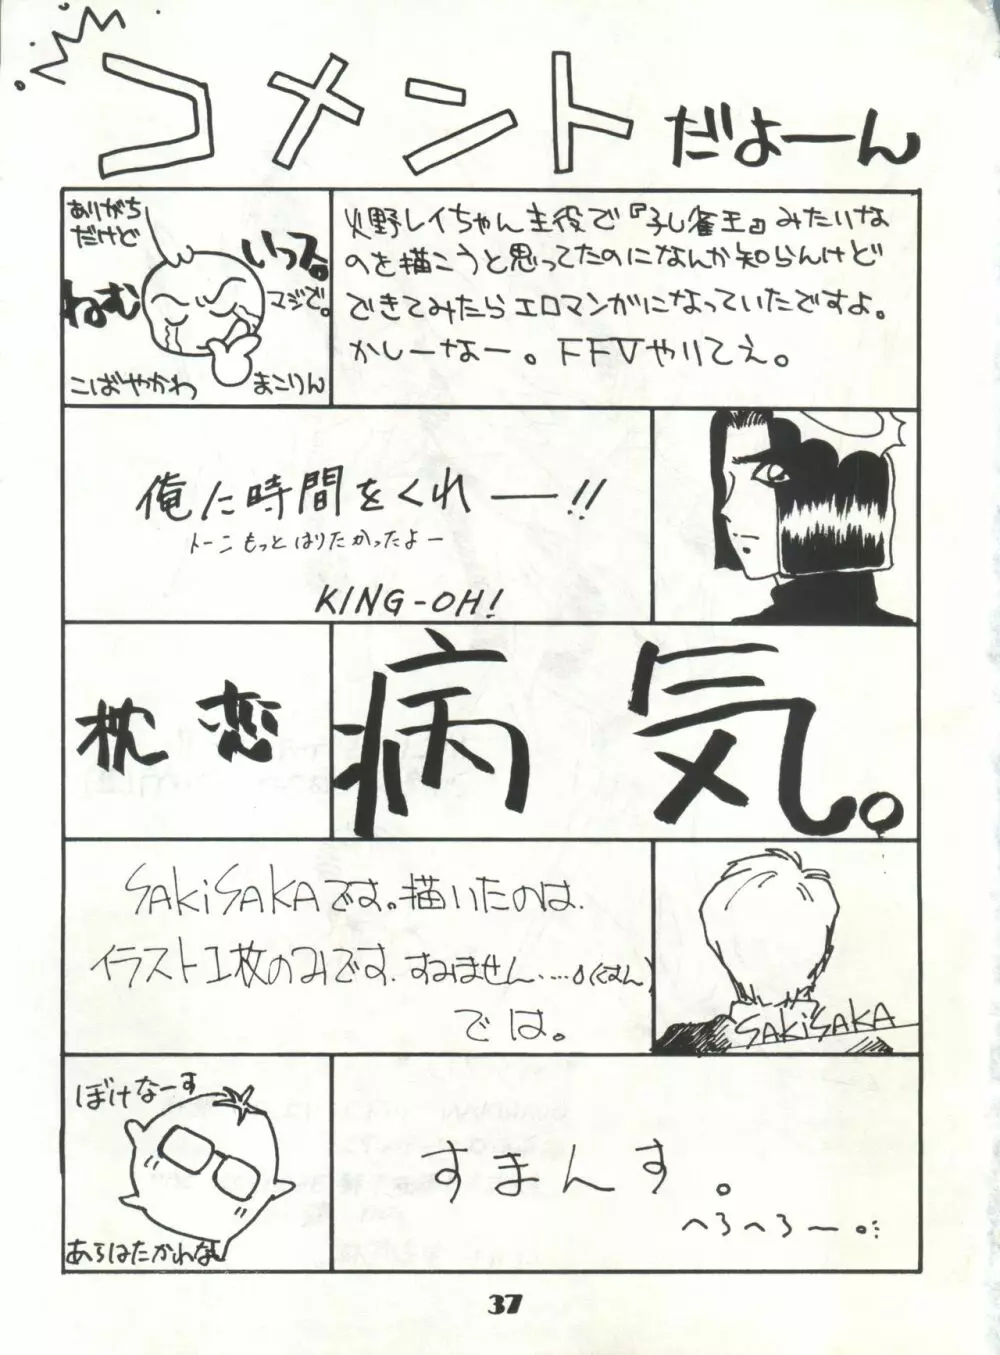 コメントだよーん
ありがち
だけど
いっス。
ねむ
マジで。
こばやかわ まこりん
火野レイちゃん主役で『孔雀王』みたいな
のを描こうと思ってたのになんか知らんけど
できてみたらエロマンガになっていたですよ。
かしーなー。FFⅤやりてえ。
俺に時間をくれー!!
トーンもっとはりたかったよー
KING-OH!
枕 恋
病気。
SAKiSAKAです。描いたのは
イラスト1枚のみです。すみません……
では。
SAKiSAKA
ぼけなーす
すまんす。
へろへろー
37